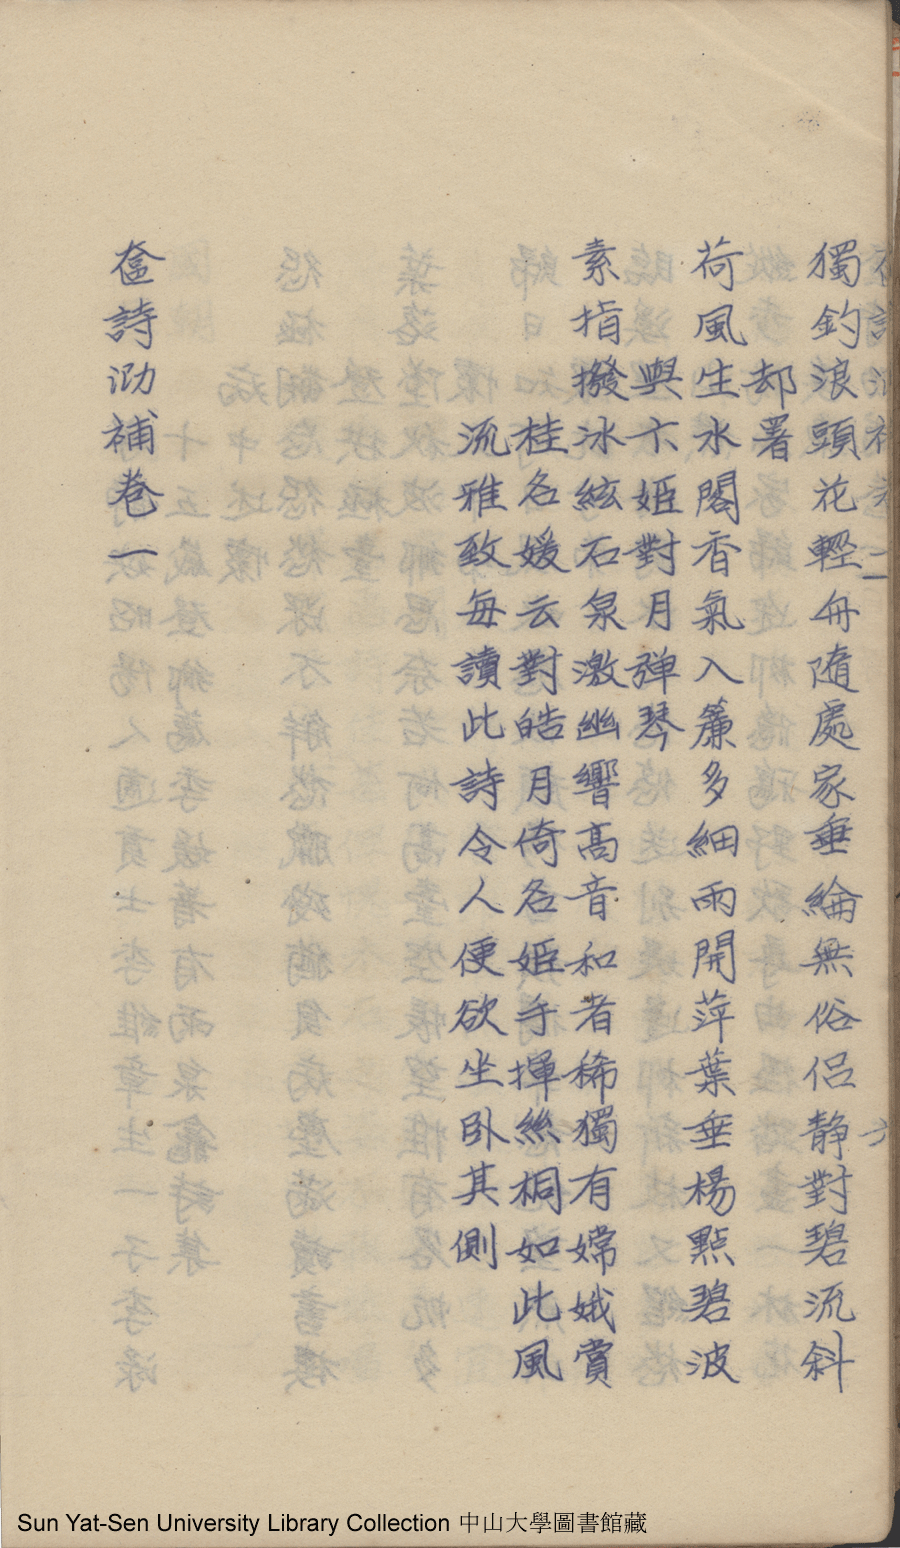 獨釣浪頭花輕舟隨處家垂綸無俗侶静對碧流斜
却署
荷風生水閣香氣入簾多細雨開萍葉垂楊點碧波
與卞姬對月弹琴
素指撥冰絃石泉激幽響高音和者稀獨有嫦娥賞
桂名媛云對皓月倚名姬手揮絲桐如此風
流雅致每讀此詩令人便欲坐卧其側
奩詩泐補卷一
Sun Yat-Sen University Library Collection 中山大學圖書館藏